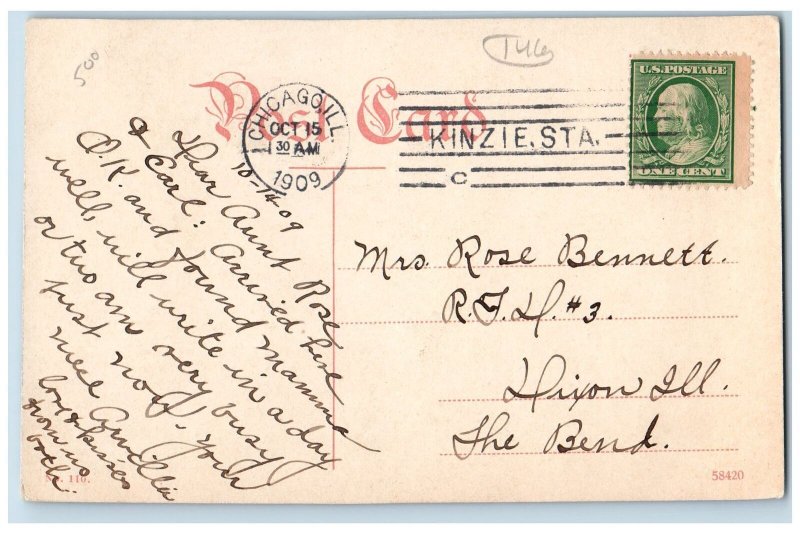 500
Post Card
CHICAGO, ILL.
OCT 15
30 AM
1909
KINZIE. STA.
C
U.S. POSTAGE
ONE CENT
10-14-09
Dear Aunt Rose
& Earl: Arrived here
O.K. and found Mamma
well, will write in a day
or two am very busy
just now. Your
niece
love & kisses
from us
both.
Mrs Rose Bennett.
R.F.D. #3.
Dixon Ill.
The Bend.
No. 110.
58420